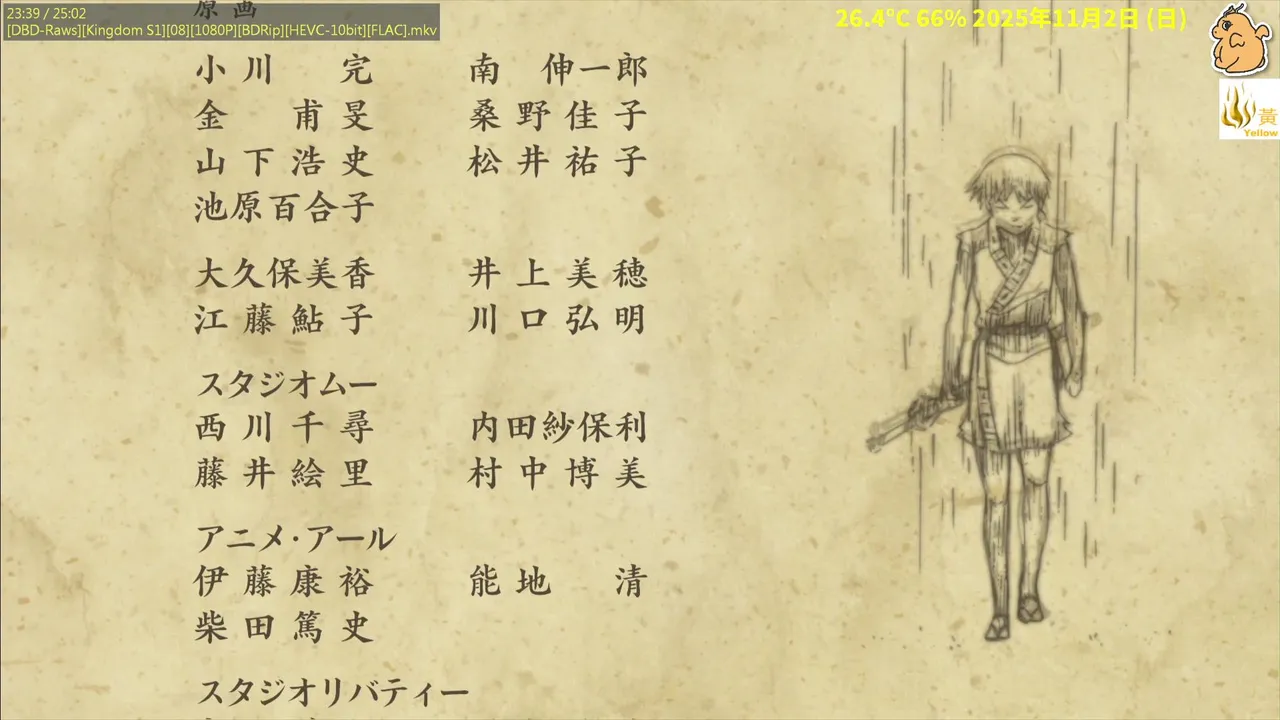 23:39 / 25:02
[DBD-Raws][Kingdom S1][08][1080P][BDRip][HEVC-10bit][FLAC].mkv
26.4°C 66% 2025年11月2日 (日)
黃
Yellow
原画
小川 完 南 伸一郎
金 甫旻 桑野佳子
山下浩史 松井祐子
池原百合子
大久保美香 井上美穂
江藤鮎子 川口弘明
スタジオムー
西川千尋 内田紗保利
藤井絵里 村中博美
アニメ・アール
伊藤康裕 能地 清
柴田篤史
スタジオリバティー